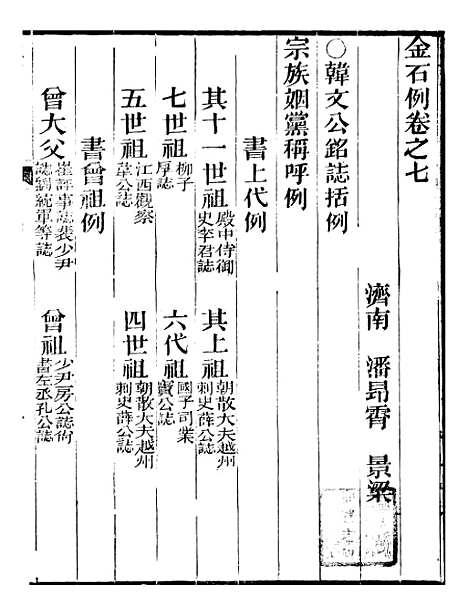 金石例卷之七
濟南 潘昂霄 景梁
○韓文公銘誌括例
宗族姻黨稱呼例
書上代例
其十一世祖殿中侍御史李君誌 其上祖朝散大夫越州刺史薛公誌
七世祖柳子厚誌 六代祖國子司業竇公誌
五世祖江西觀察韋公誌 四世祖朝散大夫越州刺史薛公誌
書曾祖例
曾大父崔評事誌裴少尹誌劉統軍等誌 曾祖少尹房公誌尚書左丞孔公誌